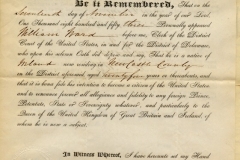 Be it Remembered, That on the
Seventeenth day of November in the year of our Lord,
One Thousand eight hundred and fifty three Personally appeared
William Ward before me, Clerk of the District
Court of the United States, in and for the District of Delaware,
who upon his solemn Oath did allege and say, That he is a native of
Ireland now residing in Newcastle County
in the District aforesaid aged twenty five years or thereabouts, and
that it is his intention to become a citizen of the United States
and to renounce forever all allegiance and fidelity to any foreign Prince,
Potentate, State or Sovereignty whatever, and particularly to the
Queen of the United Kingdom of Great Britain and Ireland of
whom he is now a subject.
In Witness Whereof, I have hereunto set my Hand